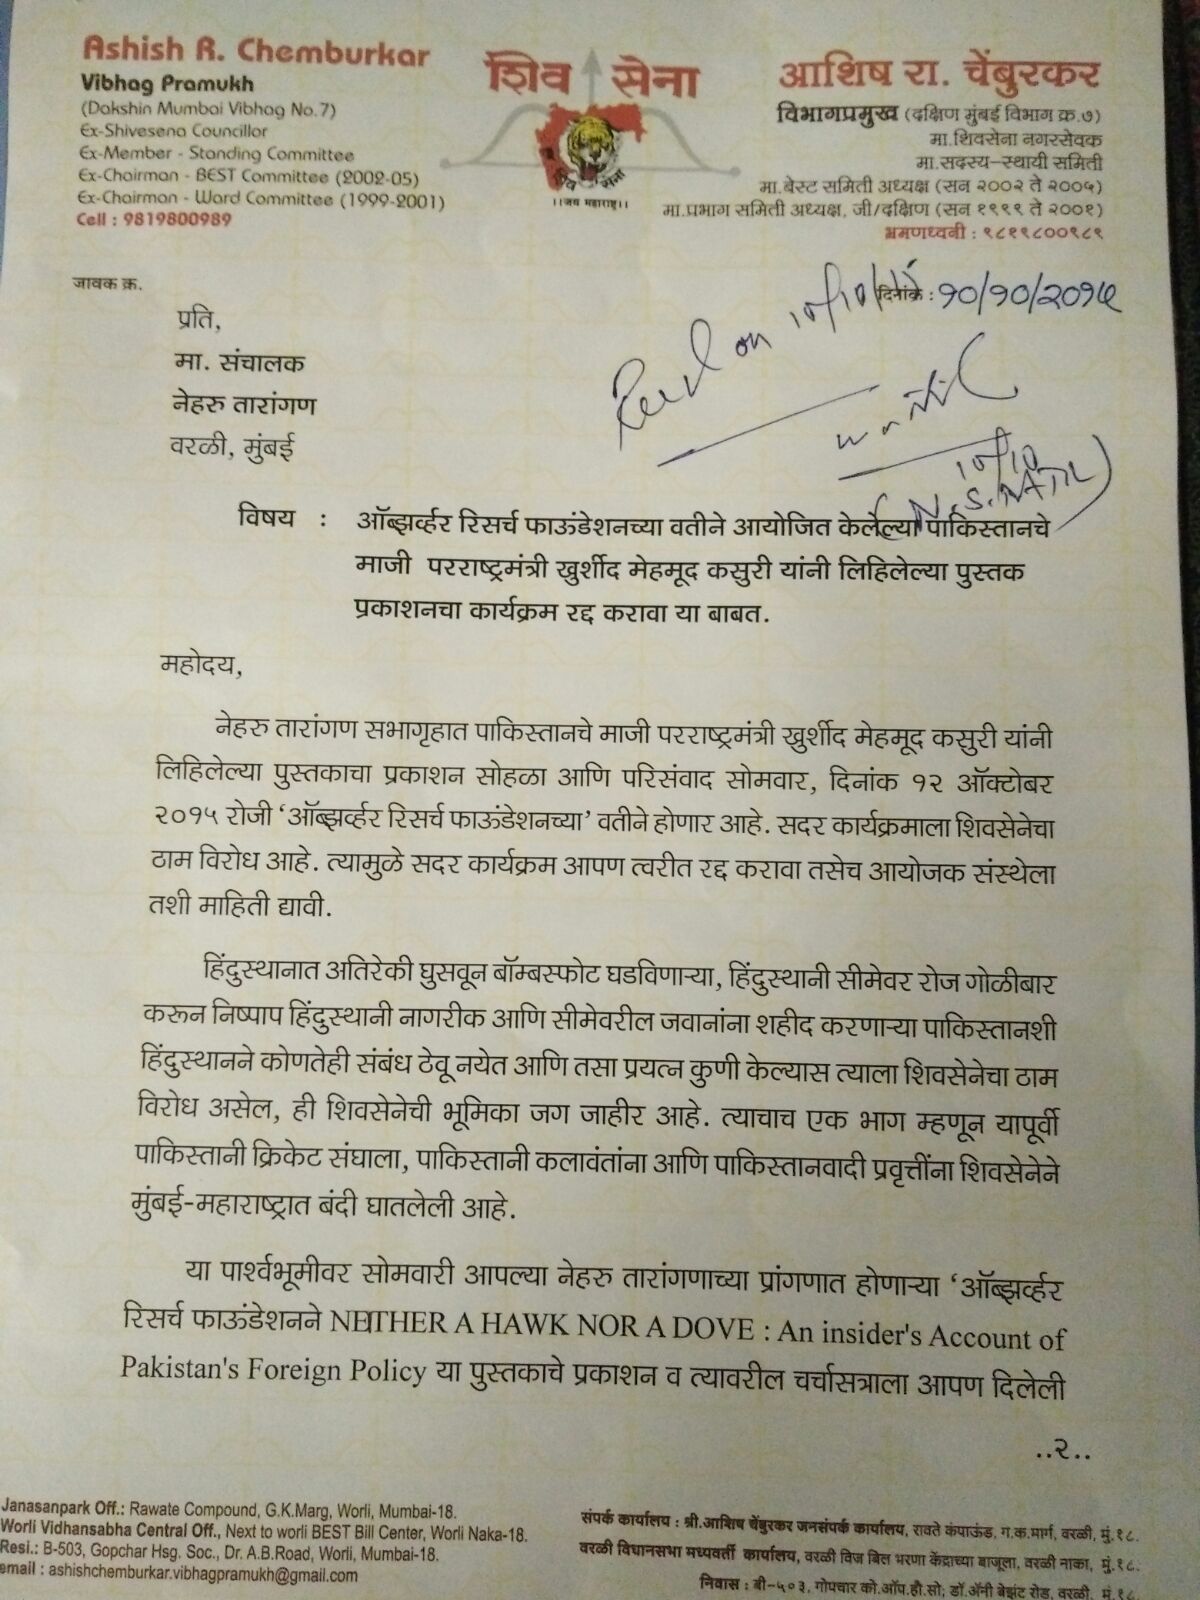 Ashish R. Chemburkar
Vibhag Pramukh
(Dakshin Mumbai Vibhag No.7)
Ex-Shivesena Councillor
Ex-Member - Standing Committee
Ex-Chairman - BEST Committee (2002-05)
Ex-Chairman - Ward Committee (1999-2001)
Cell : 9819800989
शिव सेना
शिव सेना
।।जय महाराष्ट्र।।
आशिष रा. चेंबुरकर
विभागप्रमुख (दक्षिण मुंबई विभाग क्र.७)
मा.शिवसेना नगरसेवक
मा.सदस्य-स्थायी समिती
मा.बेस्ट समिती अध्यक्ष (सन २००२ ते २००५)
मा.प्रभाग समिती अध्यक्ष, जी/दक्षिण (सन १९९९ ते २००१)
भ्रमणध्वनी : ९८१९८००९८९
जावक क्र.
दिनांक : १०/१०/२०१५
Recd on 10/10/15
10/10
(N.S. PATIL)
प्रति,
मा. संचालक
नेहरु तारांगण
वरळी, मुंबई
विषय : ऑब्झर्व्हर रिसर्च फाऊंडेशनच्या वतीने आयोजित केलेल्या पाकिस्तानचे
माजी परराष्ट्रमंत्री खुर्शीद मेहमूद कसुरी यांनी लिहिलेल्या पुस्तक
प्रकाशनचा कार्यक्रम रद्द करावा या बाबत.
महोदय,
नेहरु तारांगण सभागृहात पाकिस्तानचे माजी परराष्ट्रमंत्री खुर्शीद मेहमूद कसुरी यांनी
लिहिलेल्या पुस्तकाचा प्रकाशन सोहळा आणि परिसंवाद सोमवार, दिनांक १२ ऑक्टोबर
२०१५ रोजी ‘ऑब्झर्व्हर रिसर्च फाऊंडेशनच्या’ वतीने होणार आहे. सदर कार्यक्रमाला शिवसेनेचा
ठाम विरोध आहे. त्यामुळे सदर कार्यक्रम आपण त्वरीत रद्द करावा तसेच आयोजक संस्थेला
तशी माहिती द्यावी.
हिंदुस्थानात अतिरेकी घुसवून बॉम्बस्फोट घडविणाऱ्या, हिंदुस्थानी सीमेवर रोज गोळीबार
करून निष्पाप हिंदुस्थानी नागरीक आणि सीमेवरील जवानांना शहीद करणाऱ्या पाकिस्तानशी
हिंदुस्थानने कोणतेही संबंध ठेवू नयेत आणि तसा प्रयत्न कुणी केल्यास त्याला शिवसेनेचा ठाम
विरोध असेल, ही शिवसेनेची भूमिका जग जाहीर आहे. त्याचाच एक भाग म्हणून यापूर्वी
पाकिस्तानी क्रिकेट संघाला, पाकिस्तानी कलावंतांना आणि पाकिस्तानवादी प्रवृत्तींना शिवसेनेने
मुंबई-महाराष्ट्रात बंदी घातलेली आहे.
या पार्श्वभूमीवर सोमवारी आपल्या नेहरु तारांगणाच्या प्रांगणात होणाऱ्या ‘ऑब्झर्व्हर
रिसर्च फाऊंडेशनने NEITHER A HAWK NOR A DOVE : An insider's Account of
Pakistan's Foreign Policy या पुस्तकाचे प्रकाशन व त्यावरील चर्चासत्राला आपण दिलेली
..२..
Janasanpark Off.: Rawate Compound, G.K.Marg, Worli, Mumbai-18.
Worli Vidhansabha Central Off., Next to worli BEST Bill Center, Worli Naka-18.
Resi.: B-503, Gopchar Hsg. Soc., Dr. A.B.Road, Worli, Mumbai-18.
email : ashishchemburkar.vibhagpramukh@gmail.com
संपर्क कार्यालय : श्री.आशिष चेंबुरकर जनसंपर्क कार्यालय, रावते कंपाऊंड, ग.क.मार्ग, वरळी, मुं.१८.
वरळी विधानसभा मध्यवर्ती कार्यालय, वरळी विज बिल भरणा केंद्राच्या बाजूला, वरळी नाका, मुं.१८.
निवास : बी-५०३, गोपचार को.ऑप.हौ.सो, डॉ.ॲनी बेझंट रोड, वरळी, मुं.१८.